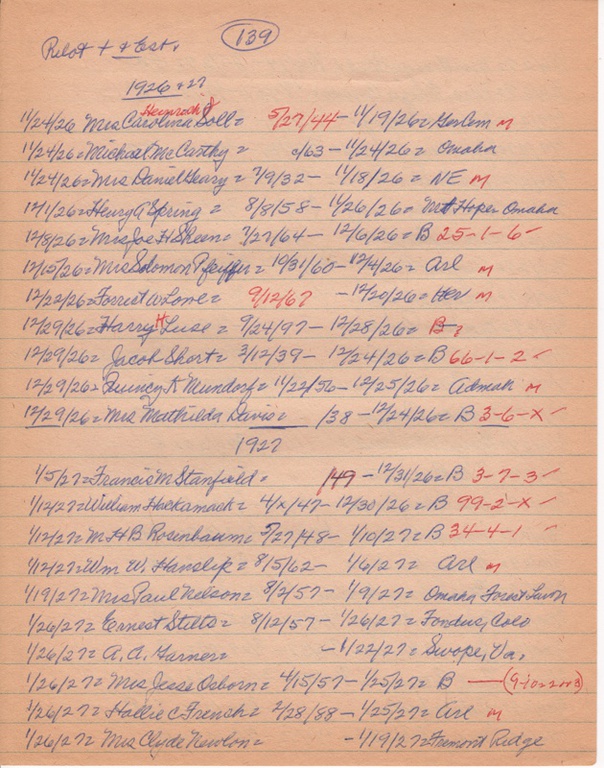 139
Pilot + & Est.
1926 & 27
Heinrech
11/24/26 Mrs Carolina Soll = 5/27/44 - 11/19/26 = Ger Cem M
11/24/26 = Michael McCarthy = /63 - 11/24/26 = Omaha
11/24/26 = Mrs Daniel Geary = 7/9/32 - 11/18/26 = NE M
12/1/26 = Henry A Spring = 8/8/58 - 11/26/26 = Mt Hope Omaha
12/8/26 = Mrs Joe H Skeen = 7/27/64 - 12/6/26 = B 25-1-6 ✓
12/15/26 = Mrs Solomon Pfeiffer = 10/31/60 - 12/4/26 = Arl M
12/22/26 = Forrist W Lowe = 9/12/67 - 12/20/26 = Her M
12/29/26 = Harry H Luse = 9/24/97 - 12/28/26 = B
12/29/26 = Jacob Short = 3/12/39 - 12/24/26 = B 66-1-2 ✓
12/29/26 = Quincy K Mundorf = 11/22/56 - 12/25/26 = Admah M
12/29/26 = Mrs Mathilda Davis = /38 - 12/24/26 = B 3-6-X ✓
1927
1/5/27 = Francis M Stanfield = /49 - 12/31/26 = B 3-7-3 ✓
1/12/27 = William Hackamack = 4/x/47 - 12/30/26 = B 99-2-X ✓
1/12/27 = M H B Rosenbaum = 7/27/48 - 1/10/27 = B 34-4-1 ✓
1/12/27 = Wm W. Hanslip = 8/15/62 - 1/6/27 = Arl M
1/19/27 = Mrs Paul Nelson = 8/2/57 - 1/9/27 = Omaha Forest Lawn
1/26/27 = Ernest Stilts = 8/12/57 - 1/26/27 = Fondus, Colo
1/26/27 = A. A. Garner = - 1/22/27 = Swope, Va.
1/26/27 = Mrs Jesse Osborn = 4/15/57 - 1/25/27 = B
1/26/27 = Hallie C French = 2/28/88 - 1/25/27 = Arl M
1/26/27 = Mrs Clyde Newlon = - 1/19/27 = Fremont Ridge